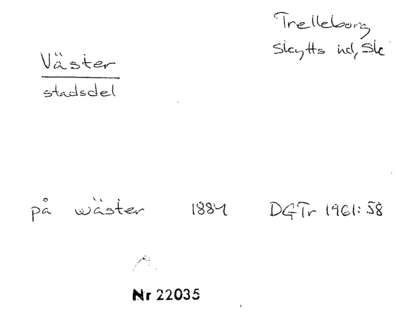 Trelleborg
Skytts hd, Sk
Väster
stadsdel
på wäster 1884 DGTr 1961:58
Nr 22035